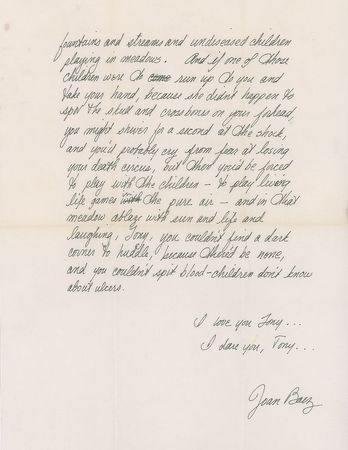 fountains and streams and undiseased children
playing in meadows. And if one of those
children were to come run up to you and
take your hand, because she didn't happen to
spot the skull and crossbones on your forehead,
you might shiver for a second at the shock,
and you'd probably cry from fear at losing
your death circus, but then you'd be forced
to play with the children – to play living
life games with in the pure air – and in that
meadow ablaze with sun and life and
laughing, Tony, you couldn't find a dark
corner to huddle, because there'd be none,
and you couldn't spit blood-children don't know
about ulcers.
I love you Tony...
I dare you, Tony...
Joan Baez